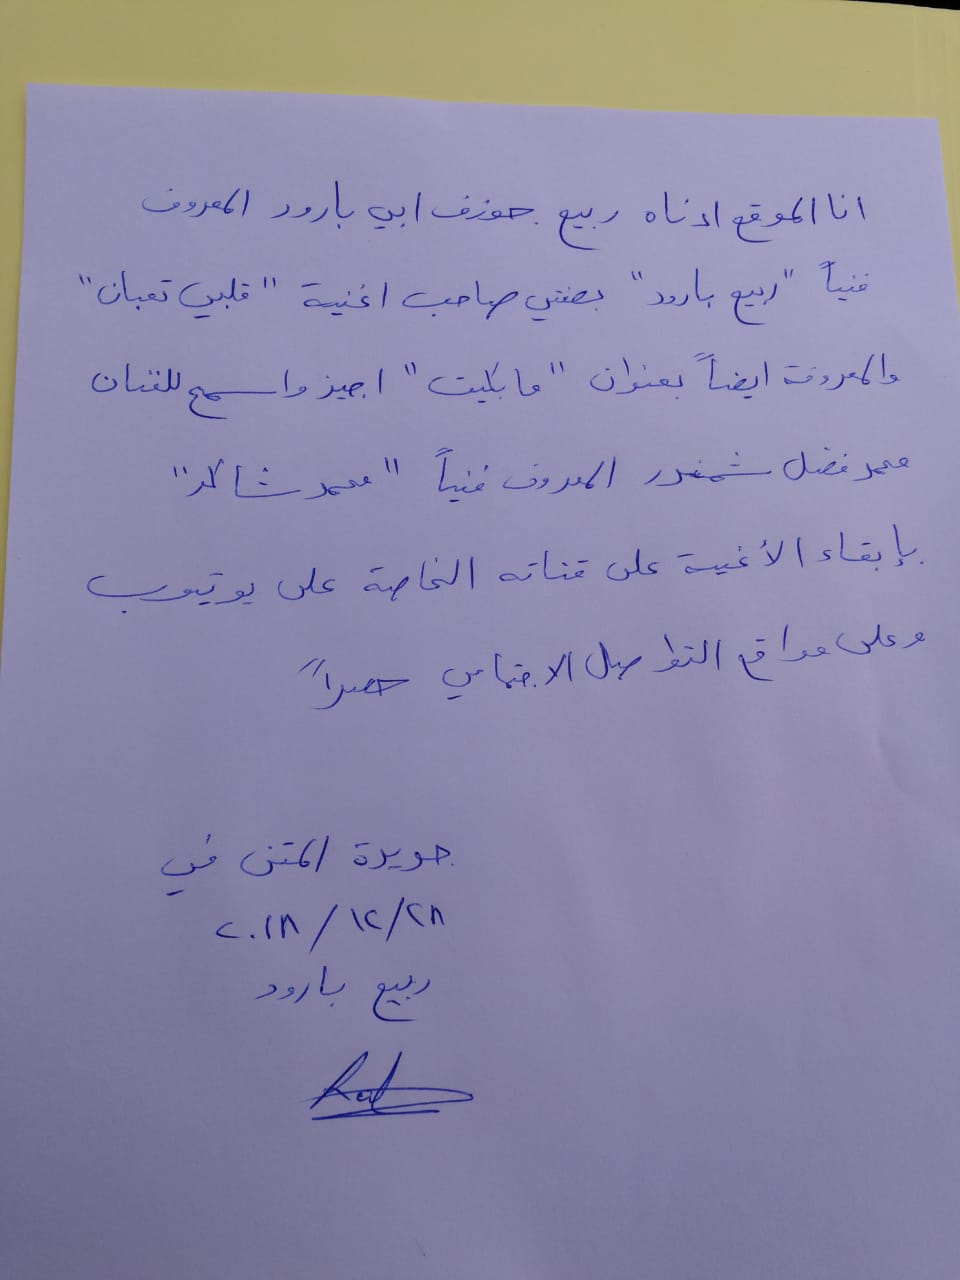 انا الموقع ادناه ربيع جوزف ابي بارود المعروف
فنياً "ربيع بارود" بصفتي صاحب اغنية "قلبي تعبان"
والمعروفة ايضاً بعنوان "ما بكيت" اجيز واسمح للفنان
محمد فضل شمندر المعروف فنياً "محمد شاكر"
بإبقاء الأغنية على قناته الخاصة على يوتيوب
وعلى مواقع التواصل الاجتماعي حصراً
جويرة المتن في
٢٠١٨/١٢/٢٨
ربيع بارود